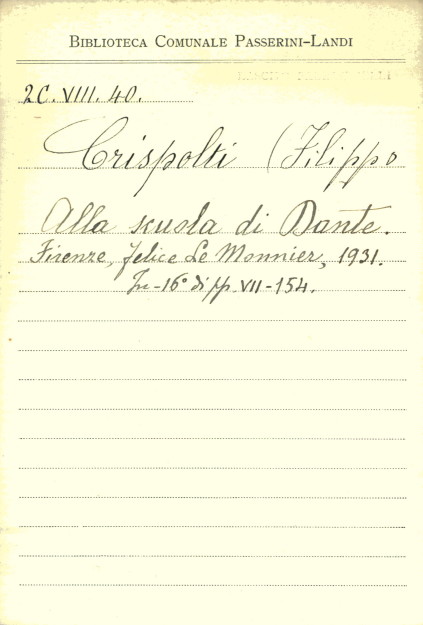 BIBLIOTECA COMUNALE PASSERINI-LANDI
2C. VIII. 40.
Crispolti (Filippo
Alla scuola di Dante.
Firenze, Felice Le Monnier, 1931.
In-16° di pp. VII-154.